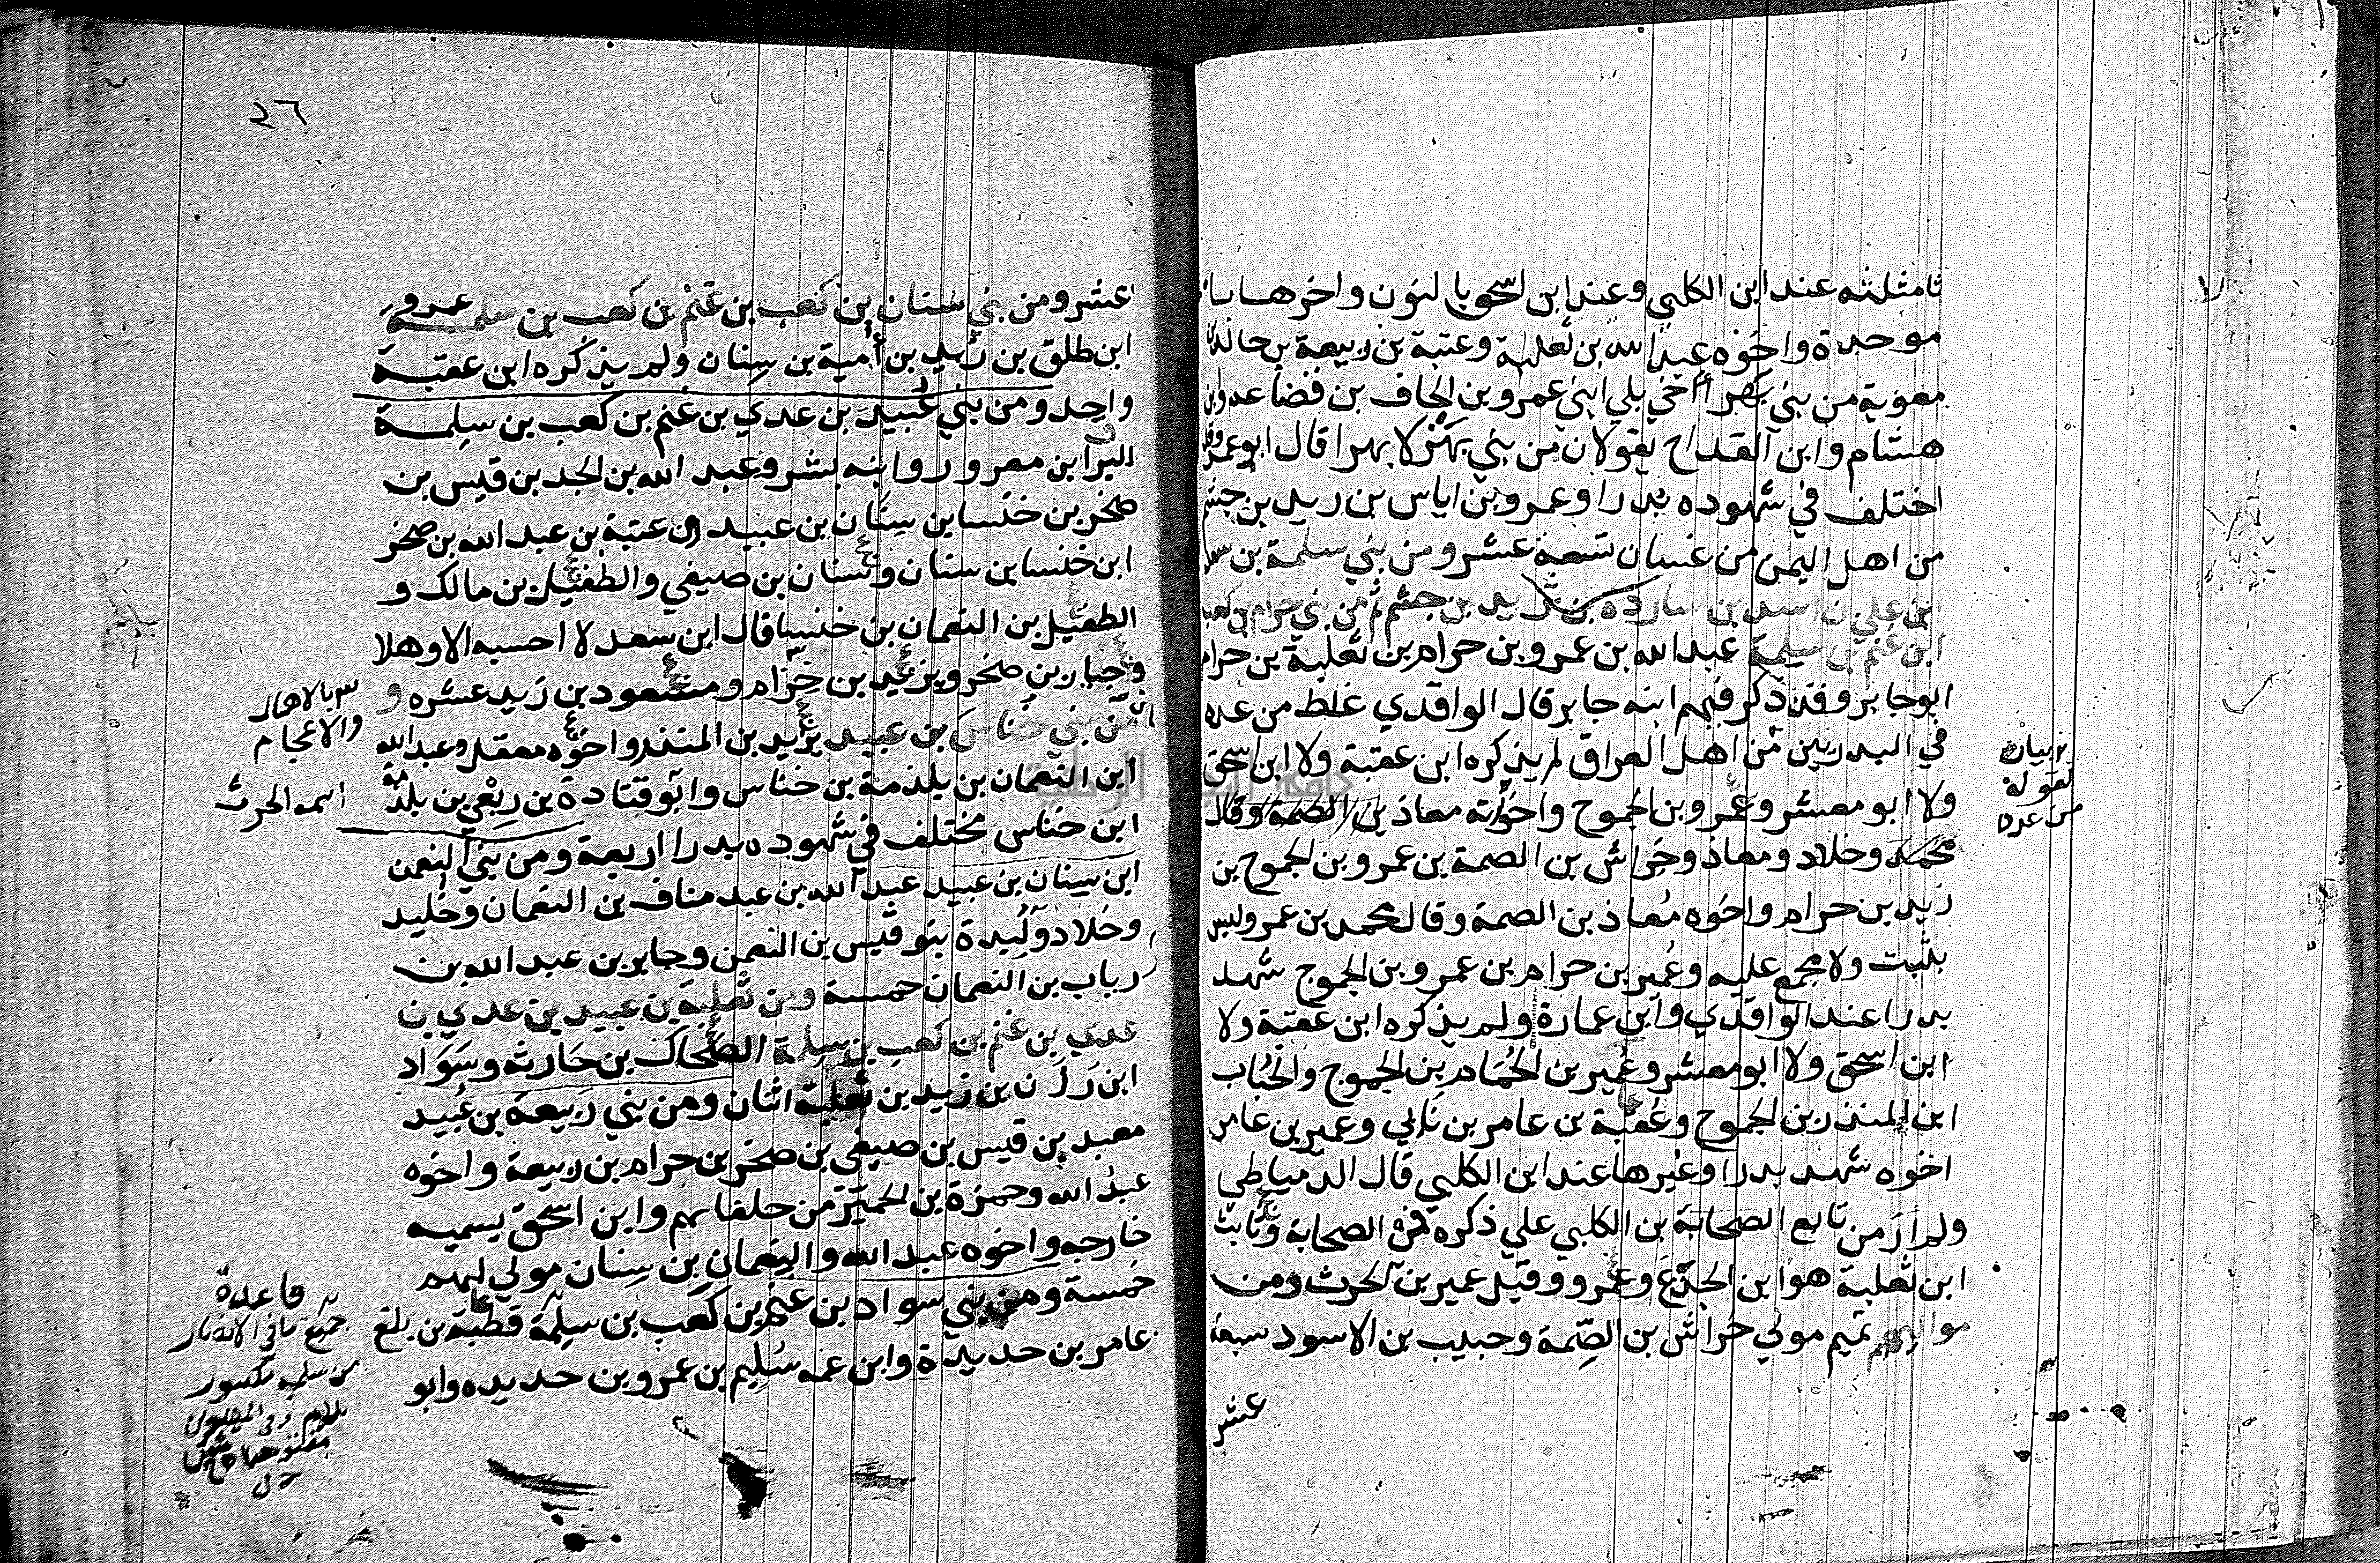 ثامثلثه عند ابن الكلبي وعند ابن اسحق بالنون واخرها با
موحدة واخوه عبد الله بن ثعلبة وعتبة بن ربيعة بن خالد بن
معوية من بني بهرا اخي بلي ابني عمرو بن الحاف بن قضاعه وابن
هشام وابن القداح يقولان من بني بهز لا بهرا قال ابو عمر وقد
اختلف في شهوده بدرا وعمرو بن اياس بن زيد بن جشم
من اهل اليمن من غسان تسعة عشر ومن بني سلمة بن سعد
بن علي بن اسد بن سارده بن تزيد بن جشم ثم من بني حرام بن كعب
ابن غنم بن سلمة عبد الله بن عمرو بن حرام بن ثعلبة بن حرام
ابو جابر وقد ذكر فيهم ابنه جابر قال الواقدي غلط من عده
في البدريين من اهل العراق لم يذكره ابن عقبة ولا ابن اسحق
ولا ابو معشر وعمرو بن الجموح واخوته معاذ بن الصمة وقال
محمد وخلاد ومعاذ وخراش بن الصمة بن عمرو بن الجموح بن
زيد بن حرام واخوه معاذ بن الصمة وقال محمد بن عمر وليس
بثبت ولا مجمع عليه وعمير بن حرام بن عمرو بن الجموح شهد
بدرا عند الواقدي وابن عمارة ولم يذكره ابن عقبة ولا
ابن اسحق ولا ابو معشر وعمير بن الحمام بن الجموح والحباب
ابن المنذر بن الجموح وعقبة بن عامر بن نابي وعمير بن عامر
اخوه شهد بدرا وغيرها عند ابن الكلبي قال الدمياطي
ولم ار من تابع الصحابة بن الكلبي علي ذكره في الصحابة وثابت
ابن ثعلبة هو ابن الجذع وعمرو وقيل عمير بن الحرث ومن
مواليهم تميم مولي خراش بن الصمة وحبيب بن الاسود سبعة
عشر
بيان
لقوله
من عده
٢٦
عشر ومن بني سنان بن كعب بن غنم بن كعب بن سلمة عمرو
ابن طلق بن زيد بن امية بن سنان ولم يذكره ابن عقبة
واحد ومن بني عبيد بن عدي بن غنم بن كعب بن سلمة
البرا بن معرور وابنه بشر وعبد الله بن الجد بن قيس بن
صخر بن خنسا بن سنان بن عبيد وعتبة بن عبد الله بن صخر
ابن خنسا بن سنان وسنان بن صيفي والطفيل بن مالك و
الطفيل بن النعمان بن خنسا قال ابن سعد لا احسبه الا وهلا
وجبار بن صخر ويزيد بن خزام ومسعود بن زيد عشره و
من بني خناس بن عبيد يزيد بن المنذر واخوه معقل وعبد الله
ابن النعمان بن بلذمة بن خناس وابو قتادة بن ربعي بن بلذمة
ابن خناس مختلف في شهوده بدرا اربعة ومن بني النعمن
ابن سنان بن عبيد عبد الله بن عبد مناف بن النعمان وخليد
وخلاد ولبدة بنو قيس بن النعمن وجابر بن عبد الله بن
رياب بن النعمان خمسة ومن ثعلبة بن عبيد بن عدي بن
عدي بن غنم بن كعب بن سلمة الضحاك بن حارثه وسواد
ابن رزن بن زيد بن ثعلبة اثنان ومن بني ربيعة بن عبيد
معبد بن قيس بن صيفي بن صخر بن حرام بن ربيعة واخوه
عبد الله وحمزة بن الحمير من حلفائهم وابن اسحق يسميه
خارجه واخوه عبد الله والنعمان بن سنان مولي لهم
خمسة ومن بني سواد بن غنم بن كعب بن سلمة قطبة بن
عامر بن حديدة وابن عمه سليم بن عمرو بن حديده وابو
بالاهمال
والاعجام
اسمه الحرث
قاعدة
جميع ما في الانصار
من سلمه مكسور